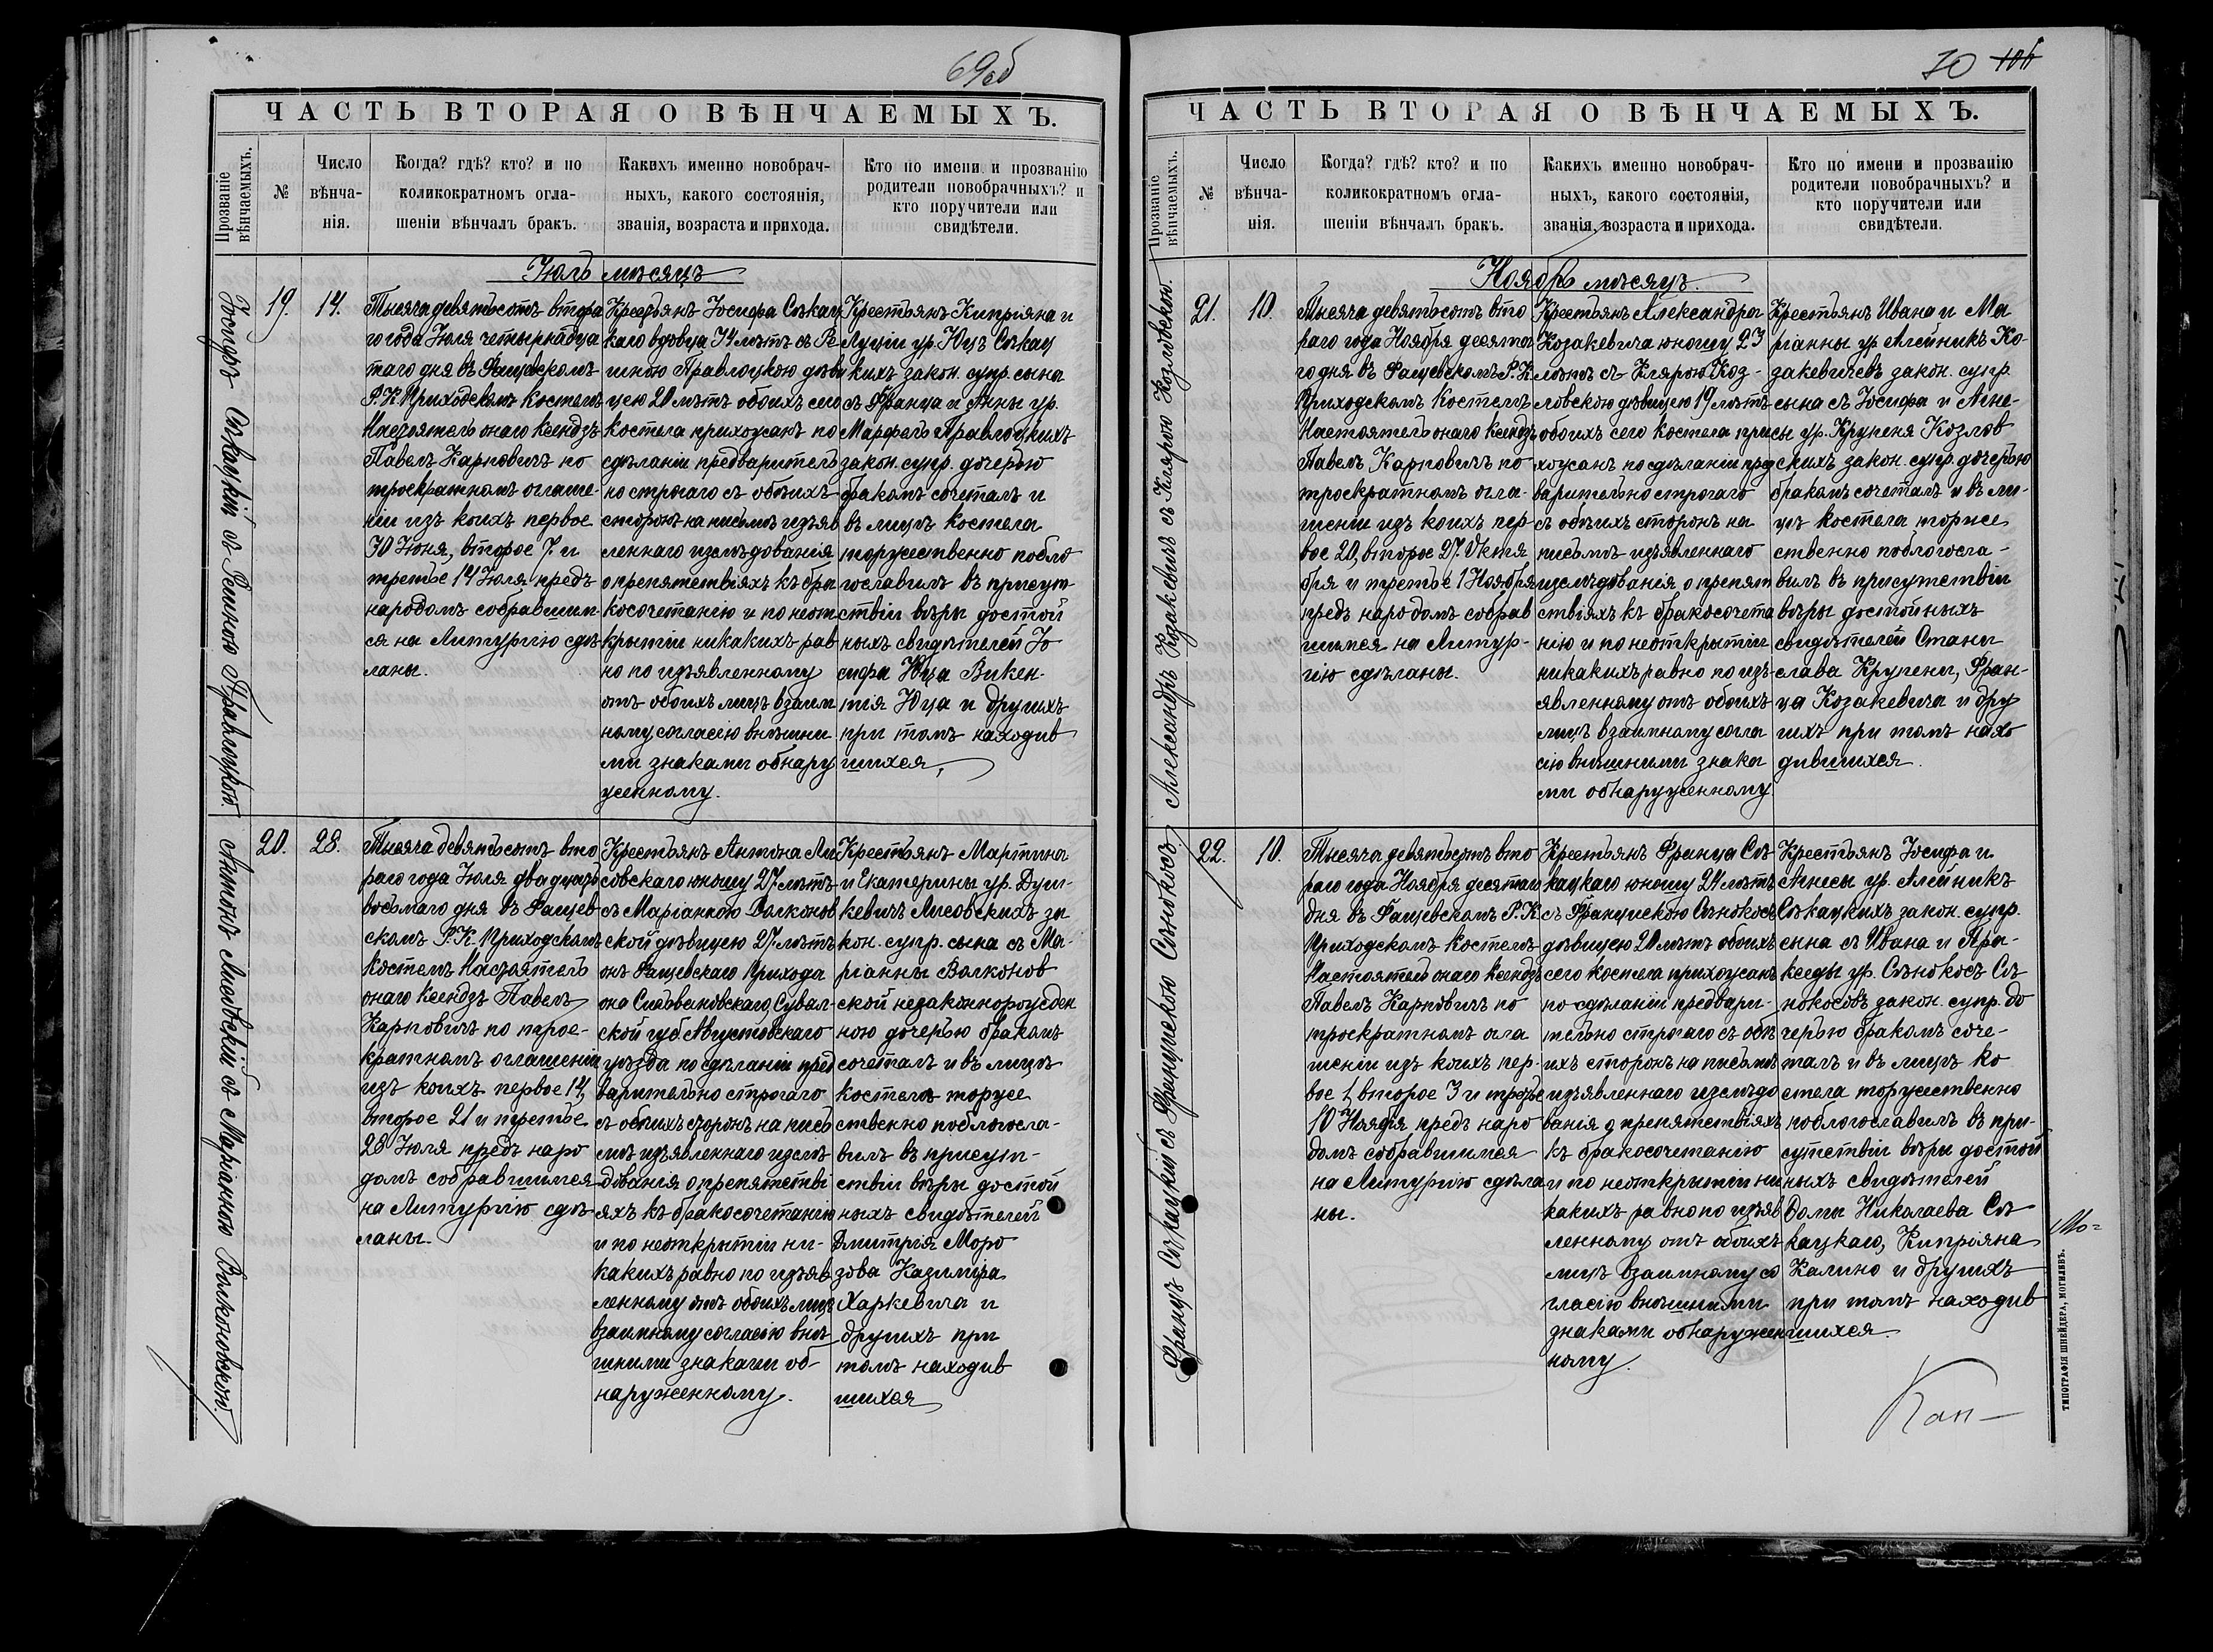 69об
ЧАСТЬ ВТОРАЯ О ВѢНЧАЕМЫХЪ.
Прозваніе
вѣнчаемыхъ.
№
Число
вѣнча-
нія.
Когда? гдѣ? кто? и по
коликократномъ огла-
шеніи вѣнчалъ бракъ.
Какихъ именно новобрач-
ныхъ, какого состоянія,
званія, возраста и прихода.
Кто по имени и прозванію
родители новобрачныхъ? и
кто поручители или
свидѣтели.
Іюль мѣсяцъ
Іосифъ Сѣкацкій съ Региною Правлоцкой.
19.
14.
Тысяча девятьсотъ втора
го года Іюля четырнадца
таго дня въ Фащевскомъ
Р.К. Приходскомъ Костелѣ
Настоятель онаго Ксендзъ
Павелъ Карповичъ по
троекратномъ оглаше-
ніи изъ коихъ первое
30 Іюня, второе 7. и
третье 14 Іюля предъ
народомъ собравшим
ся на Литургію сдѣ
ланы.
Крестьянъ Іосифа Сѣкац
каго вдовца 34 лѣтъ съ Ре
гиною Правлоцкою дѣви
цею 20 лѣтъ обоихъ сего
костела прихожанъ по
сдѣланіи предваритель
но строгаго съ обѣихъ
сторонъ на письмѣ изъяв
леннаго изслѣдованія
о препятствіяхъ къ бра
косочетанію и по неот
крытіи никакихъ рав
но по изъявленному
отъ обоихъ лицъ взаим
ному согласію внѣшни
ми знаками обнару
женному.
Крестьянъ Кипріяна и
Луціи ур. Юцъ Сѣкац
кихъ закон. супр. сына
съ Франца и Анны ур.
Марфель Правлоцкихъ
закон. супр. дочерью
бракомъ сочеталъ и
въ лицѣ костела
торжественно побло
гославилъ въ присут
ствіи вѣры достой
ныхъ свидѣтелей Іо
сифа Юца Викен-
тія Юца и другихъ
при томъ находив
шихся.
Антонъ Лисовскій съ Маріанною Волконовской.
20.
28.
Тысяча девятьсотъ вто
раго года Іюля двадцать
восьмаго дня въ Фащев
скомъ Р.К. Приходскомъ
Костелѣ Настоятель
онаго Ксендзъ Павелъ
Карповичъ по трое-
кратномъ оглашеніи
изъ коихъ первое 14,
второе 21 и третье
28 Іюля предъ наро
домъ собравшимся
на Литургію сдѣ
ланы.
Крестьянъ Антона Ли
совскаго юношу 27 лѣтъ
съ Маріанною Волконов
ской дѣвицею 27 лѣтъ
онъ Фащевскаго Прихода
она Сувал-
ской губ. Августовскаго
уѣзда по сдѣланіи пред
варительно строгаго
съ обѣихъ сторонъ на пись
мѣ изъявленнаго изслѣ
дованія о препятстві
яхъ къ бракосочетанію
и по неоткрытіи ни-
какихъ равно по изъяв
ленному отъ обоихъ лицъ
взаимному согласію внѣ
шними знаками об-
наруженному.
Крестьянъ Мартина
и Екатерины ур. Душ-
кевичъ Лисовскихъ за
кон. супр. сына съ Ма-
ріанны Волконов
ской незаконнорожден
ною дочерью бракомъ
сочеталъ и въ лицѣ
костела торже
ственно поблогосла-
вилъ въ присут-
ствіи вѣры достой
ныхъ свидѣтелей
Дмитрія Моро
зова Казиміра
Харкевича и
другихъ при
томъ находив
шихся
70 106
ЧАСТЬ ВТОРАЯ О ВѢНЧАЕМЫХЪ.
Прозваніе
вѣнчаемыхъ.
№
Число
вѣнча-
нія.
Когда? гдѣ? кто? и по
коликократномъ огла-
шеніи вѣнчалъ бракъ.
Какихъ именно новобрач-
ныхъ, какого состоянія,
званія, возраста и прихода.
Кто по имени и прозванію
родители новобрачныхъ? и
кто поручители или
свидѣтели.
Ноябрь мѣсяцъ.
Александръ Козакевичъ съ Клярою Козловскою.
21.
10.
Тысяча девятьсотъ вто
раго года Ноября десята
го дня въ Фащевскомъ Р.К.
Приходскомъ Костелѣ
Настоятель онаго Ксендзъ
Павелъ Карповичъ по
троекратномъ огла-
шеніи изъ коихъ пер-
вое 20, второе 27. Октя
бря и третье 1 Ноября
предъ народомъ собрав
шимся на Литур-
гію сдѣланы.
Крестьянъ Александра
Козакевича юношу 23
лѣтъ съ Клярою Коз-
ловскою дѣвицею 19 лѣтъ
обоихъ сего костела при
хожанъ по сдѣланіи пред
варительно строгаго
съ обѣихъ сторонъ на
письмѣ изъявленнаго
изслѣдованія о препят
ствіяхъ къ бракосочета
нію и по неоткрытіи
никакихъ равно по изъ-
явленному отъ обоихъ
лицъ взаимному согла
сію внѣшними знака
ми обнаруженному
Крестьянъ Ивана и Ма
ріанны ур Алейникъ Ко-
закевичевъ закон. супр.
сына съ Іосифа и Агне-
сы ур. Крупеня Козлов
скихъ закон. супр. дочерью
бракомъ сочеталъ и въ ли-
цѣ костела торже
ственно поблогосла-
вилъ въ присутствіи
вѣры достойныхъ
свидѣтелей Стани
слава Крупени, Фран-
ца Козакевича и дру
гихъ при томъ нахо
дившихся.
Францъ Сѣкацкій съ Францишкою Сѣнокосъ
22.
10.
Тысяча девятьсотъ вто
раго года Ноября десятаго
дня въ Фащевскомъ Р.К.
Приходскомъ Костелѣ
Настоятель онаго Ксендзъ
Павелъ Карповичъ по
троекратномъ огла
шеніи изъ коихъ пер-
вое 1, второе 3 и третье
10 Ноября предъ наро
домъ собравшимся
на Литургію сдѣла
ны.
Крестьянъ Франца Сѣ
кацкаго юношу 24 лѣтъ
съ Францишкою Сѣнокосъ
дѣвицею 20 лѣтъ обоихъ
сего костела прихожанъ
по сдѣланіи предвари-
тельно строгаго съ обѣ
ихъ сторонъ на письмѣ
изъявленнаго изслѣдо
ванія о препятствіяхъ
къ бракосочетанію
и по неоткрытіи ни
какихъ равно по изъяв
ленному отъ обоихъ
лицъ взаимному со
гласію внѣшними
знаками обнаружен
ному.
Крестьянъ Іосифа и
Агнесы ур. Алейникъ
Сѣкацкихъ закон. супр.
сына съ Ивана и Пра-
кседы ур. Сѣнокосъ Сѣ
нокосовъ закон. супр. до
черью бракомъ соче-
талъ и въ лицѣ ко
стела торжественно
поблогославилъ въ при-
сутствіи вѣры достой
ныхъ свидѣтелей
Фомы Николаева Сѣ
кацкаго, Кипріяна
Калино и другихъ
при томъ находив
шихся.
Мо=
Кап-
ТИПОГРАФІЯ ШНЕЙДЕРА, МОГИЛЕВЪ.